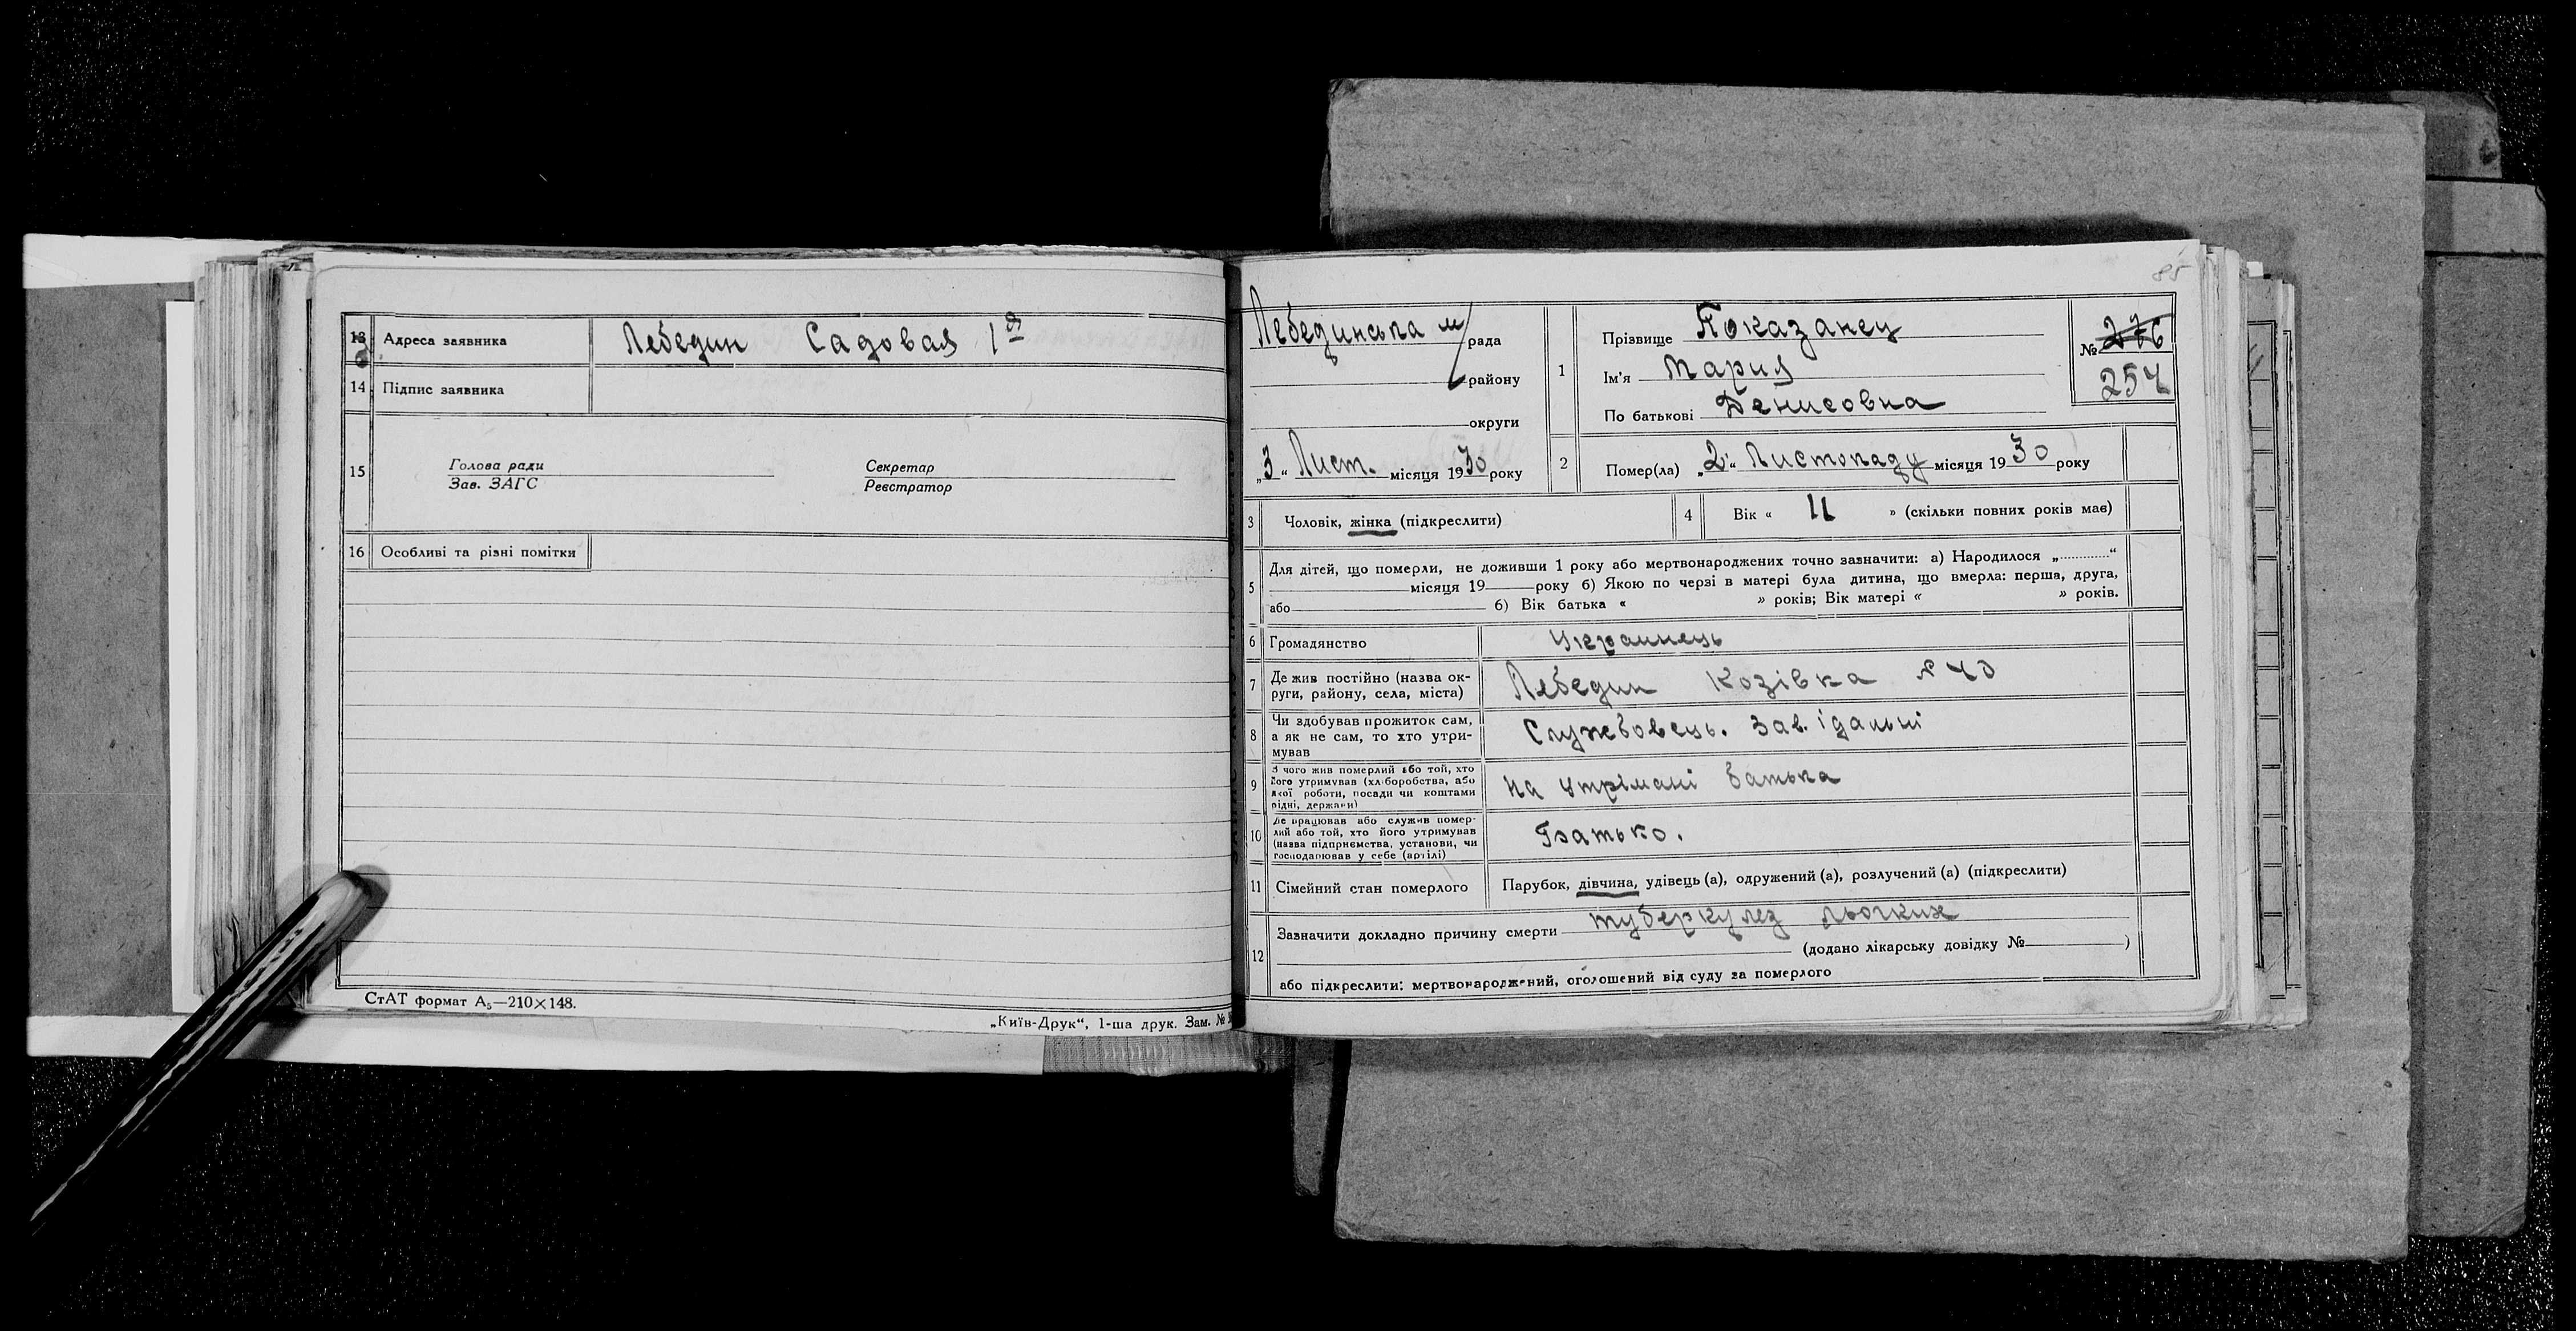 13 Адреса заявника Лебедин Садовая 1я
14 Підпис заявника
15 Голова ради Секретар
Зав. ЗАГС Реєстратор
16 Особливі та різні помітки
СтАТ формат А5—210×148.
„Київ-Друк“, 1-ша друк. Зам. №
85
Лебединська м/рада
району
округи
„3“ Лист. місяця 1930 року
1 Прізвище Показанец
Ім'я Мария
По батькові Денисовна
№ 276
257
2 Помер(ла) „2“ Листопаду місяця 1930 року
3 Чоловік, жінка (підкреслити)
4 Вік « 11 » (скільки повних років має)
5 Для дітей, що померли, не доживши 1 року або мертвонароджених точно зазначити: а) Народилося „............“
місяця 19 року б) Якою по черзі в матері була дитина, що вмерла: перша, друга,
або б) Вік батька « » років; Вік матері « » років.
6 Громадянство Украинець
7 Де жив постійно (назва ок-
руги, району, села, міста) Лебедин Козівка № 40
8 Чи здобував прожиток сам,
а як не сам, то хто утри-
мував Службовець. Зав. їдальні
9 З чого жив померлий або той, хто
його утримував (хліборобства, або
якої роботи, посади чи коштами
рідні, держави) На утрімані батька
10 Де працював або служив помер-
лий або той, хто його утримував
(назва підприємства, установи, чи
господарював у себе (артілі) Батько.
11 Сімейний стан померлого Парубок, дівчина, удівець (а), одружений (а), розлучений (а) (підкреслити)
12 Зазначити докладно причину смерти туберкулез льогких
(додано лікарську довідку № )
або підкреслити: мертвонароджений, оголошений від суду за померлого